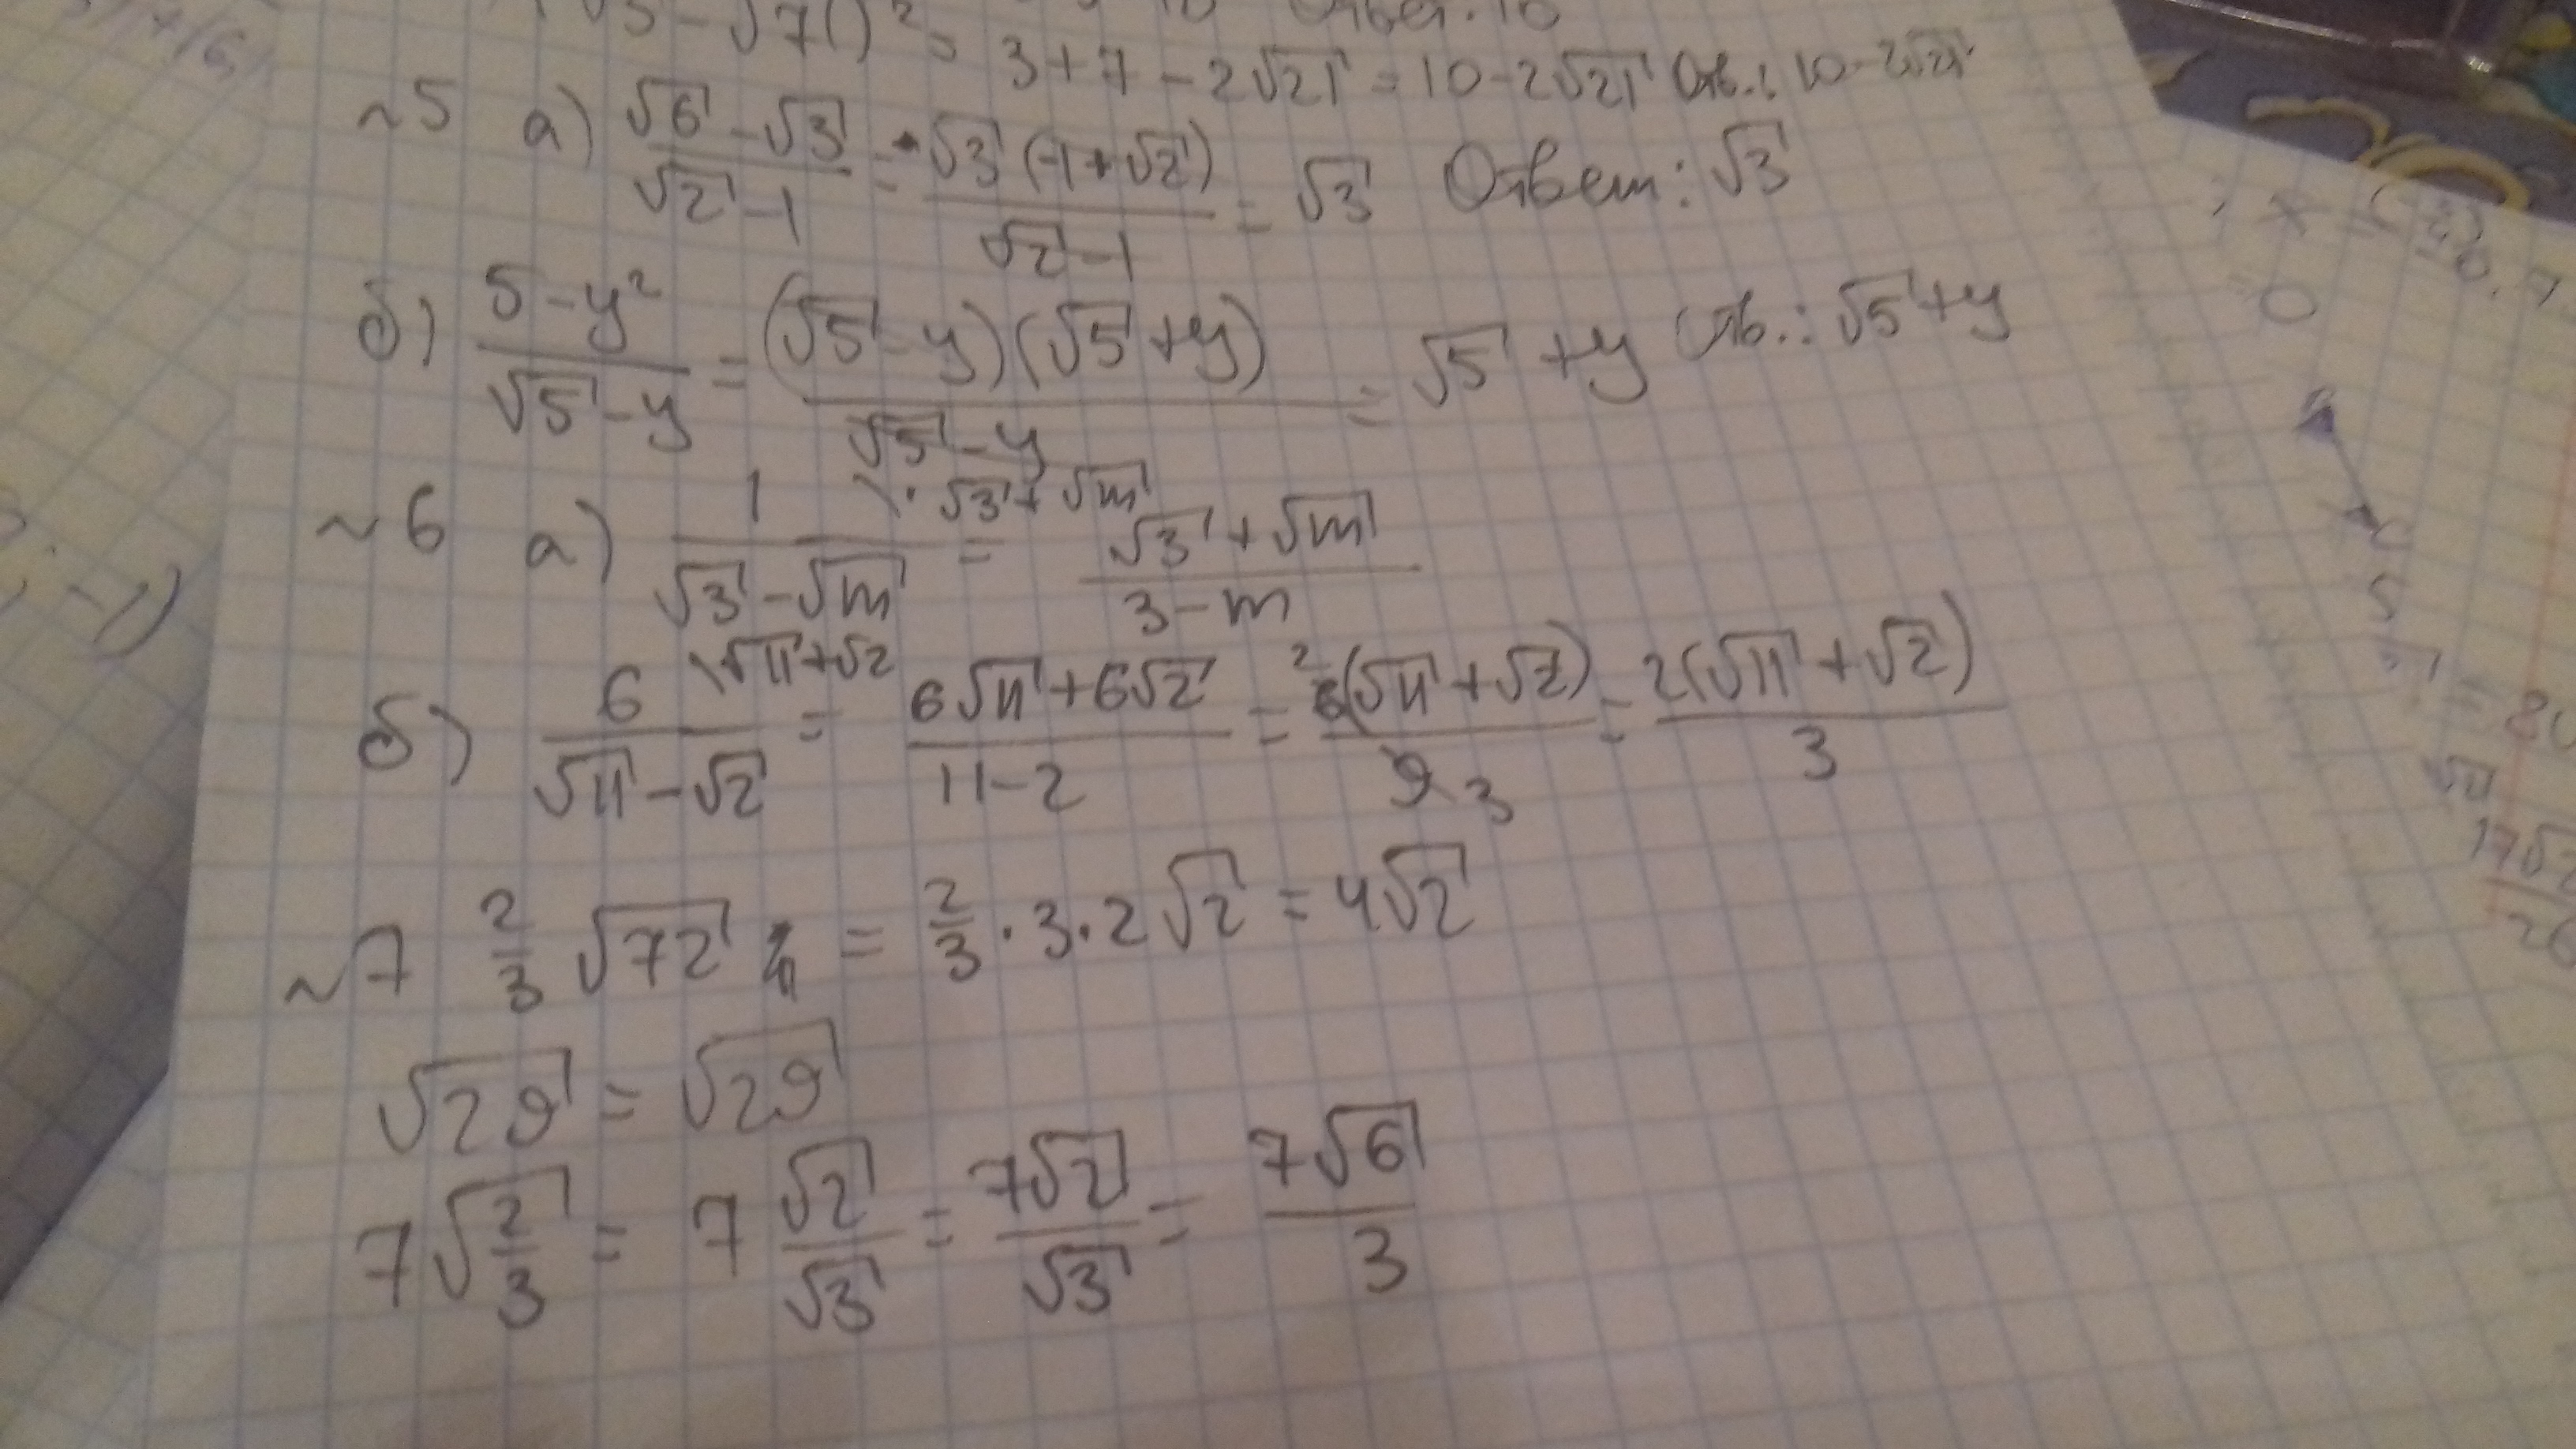 √3 - √7)² = 3+7-2√21 = 10-2√21 Отв.: 10-2√21
~5 а) (√6-√3)/(√2-1) = √3(-1+√2)/(√2-1) = √3 Ответ: √3
б) (5-y²)/(√5-y) = (√5-y)(√5+y)/(√5-y) = √5+y Отв.: √5+y
~6 а) 1\·√3+√m/(√3-√m) = (√3+√m)/(3-m)
б) 6\√11+√2/(√11-√2) = (6√11+6√2)/(11-2) = ²6(√11+√2)/9 3 = 2(√11+√2)/3
~7 2/3 √72 = 2/3·3·2√2 = 4√2
√29 = √29
7√(2/3) = 7 √2/√3 = 7√2/√3 = 7√6/3